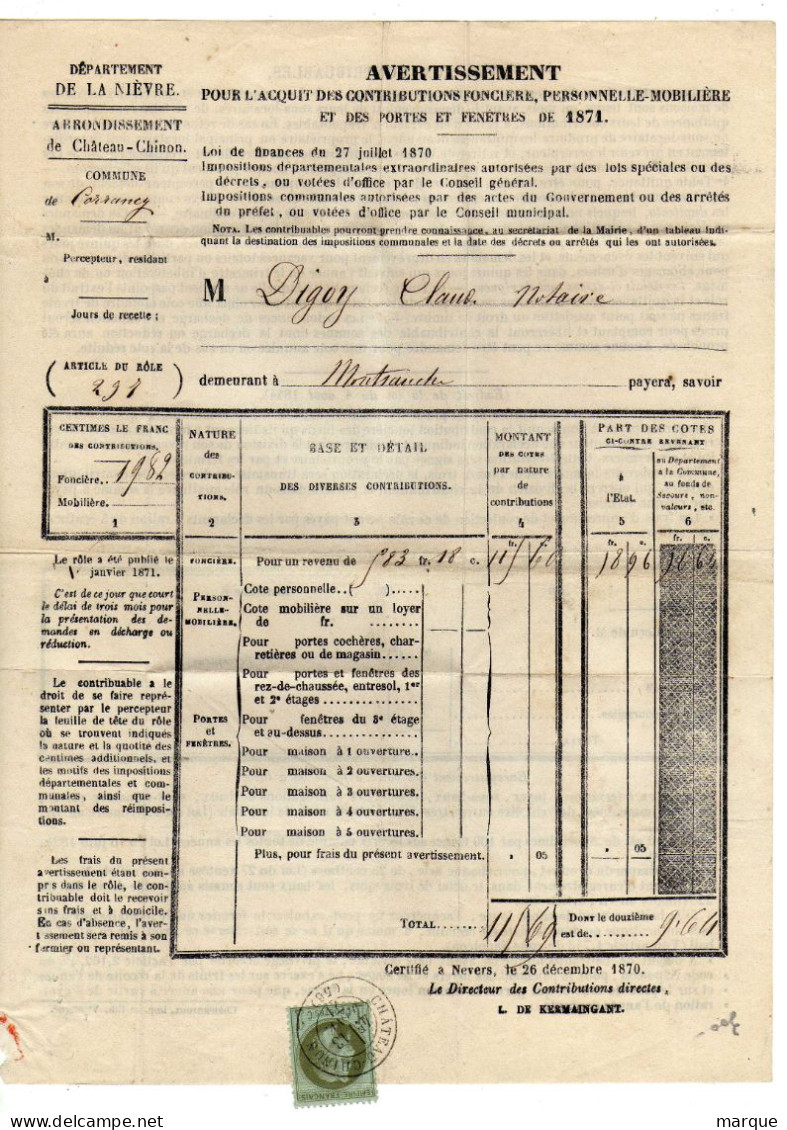 DÉPARTEMENT
DE LA NIÈVRE.
ARRONDISSEMENT
de Château-Chinon.
COMMUNE
de Corrancy
M.
Percepteur, résidant
à
Jours de recette ;
ARTICLE DU RÔLE
AVERTISSEMENT
POUR L'ACQUIT DES CONTRIBUTIONS FONCIÈRE, PERSONNELLE-MOBILIÈRE
ET DES PORTES ET FENÊTRES DE 1871.
Loi de finances du 27 juillet 1870
Impositions départementales extraordinaires autorisées par des lois spéciales ou des
décrets, ou votées d'office par le Conseil général.
Impositions communales autorisées par des actes du Gouvernement ou des arrêtés
du préfet, ou votées d'office par le Conseil municipal.
NOTA. Les contribuables pourront prendre connaissance, au secrétariat de la Mairie, d'un tableau indi-
quant la destination des impositions communales et la date des décrets ou arrêtés qui les ont autorisées.
M Digoy Claud. Notaire
demeurant à Montsauche payera, savoir
CENTIMES LE FRANC
DES CONTRIBUTIONS.
Foncière. 1982
Mobilière.
1
NATURE
des
CONTRIBU-
TIONS.
2
BASE ET DÉTAIL
DES DIVERSES CONTRIBUTIONS.
3
MONTANT
DES COTES
par nature
de
contributions
4
PART DES COTES
CI-CONTRE REVENANT
à
l'Etat.
5
au Département
a la Commune,
au fonds de
Secours, non-
valeurs, etc.
6
Le rôle a été publié le
janvier 1871.
C'est de ce jour que court
le délai de trois mois pour
la présentation des de-
mandes en décharge ou
réduction.
Le contribuable a le
droit de se faire repré-
senter par le percepteur
la feuille de tête du rôle
où se trouvent indiqués
la nature et la quotité des
centimes additionnels, et
les motifs des impositions
départementales et com-
munales, ainsi que le
montant des réimposi-
tions.
Les frais du présent
avertissement étant com-
pris dans le rôle, le con-
tribuable doit le recevoir
sans frais et à domicile.
En cas d'absence, l'aver-
tissement sera remis à son
fermier ou représentant.
fr. c. fr. c. fr. c.
FONCIÈRE. Pour un revenu de 583 fr. 18 c. 115 64 18 96 96 64
PERSON-
NELLE-
MOBILIÈRE.
Cote personnelle..( ).....
Cote mobilière sur un loyer
de fr. ......
Pour portes cochères, char-
retières ou de magasin......
Pour portes et fenêtres des
rez-de-chaussée, entresol, 1er
et 2e étages
PORTES
et
FENÊTRES.
Pour fenêtres du 3e étage
et au-dessus
Pour maison à 1 ouverture..
Pour maison à 2 ouvertures.
Pour maison à 3 ouvertures.
Pour maison à 4 ouvertures.
Pour maison à 5 ouvertures.
Plus, pour frais du présent avertissement. » 05 » 05
TOTAL 115 69 Dont le douzième
est de 9.64
Certifié a Nevers, le 26 décembre 1870.
Le Directeur des Contributions directes,
L. DE KERMAINGANT.
CHÂTEAU-CHINON
EMPIRE FRANÇAIS